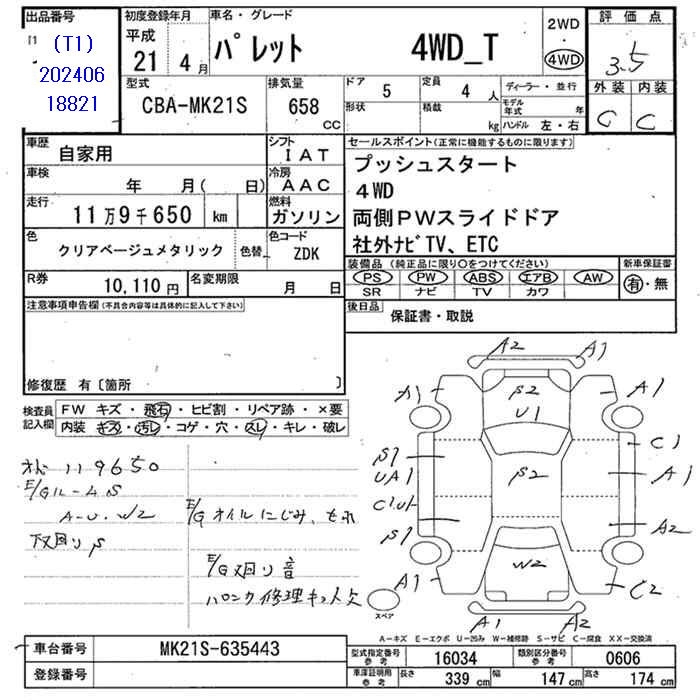 出品番号
(T1)
202406
18821
初度登録年月
平成
21 4月
車名・グレード
パレット 4WD_T
2WD
・
4WD
評価点
3.5
外装 内装
C C
型式
CBA-MK21S
排気量
658
CC
ドア 5
形状
定員 4 人
積載 kg
ディーラー・並行
モデル年式 年
ハンドル 左・右
車歴
自家用
シフト
IAT
車検
年 月( 日)
冷房
AAC
走行
11万9千650 km
燃料
ガソリン
色
クリアベージュメタリック 色替
色コード
ZDK
R券
10,110円
名変期限
月 日
セールスポイント(正常に機能するものに限ります)
プッシュスタート
4WD
両側PWスライドドア
社外ナビTV、ETC
装備品(純正品に限り○をつけてください)
PS PW ABS エアB AW
SR ナビ TV カワ
新車保証書
有・無
後日品
保証書・取説
注意事項申告欄(不具合内容等は具体的に記入して下さい)
修復歴 有〔箇所 〕
検査員
記入欄
FW キズ・飛石・ヒビ割・リペア跡・×要
内装 キズ・汚レ・コゲ・穴・スレ・キレ・破レ
119650
E/GルームS
A-U.W2
下廻りS
E/Gオイルにじみ、もれ
E/G廻り音
パンク修理キット欠
A2 A1
A1
S2
U1
A1
C1
S1
UA1
S2
A1
A2
S1
W2
A1
C2
A1 A2
スペア
A-キズ E-エクボ U-凹み W-補修跡 S-サビ C-腐食 XX-交換済
車台番号
MK21S-635443
登録番号
型式指定番号
参考
16034
類別区分番号
参考
0606
車庫証明用
参考
長さ 339 cm
幅 147 cm
高さ 174 cm